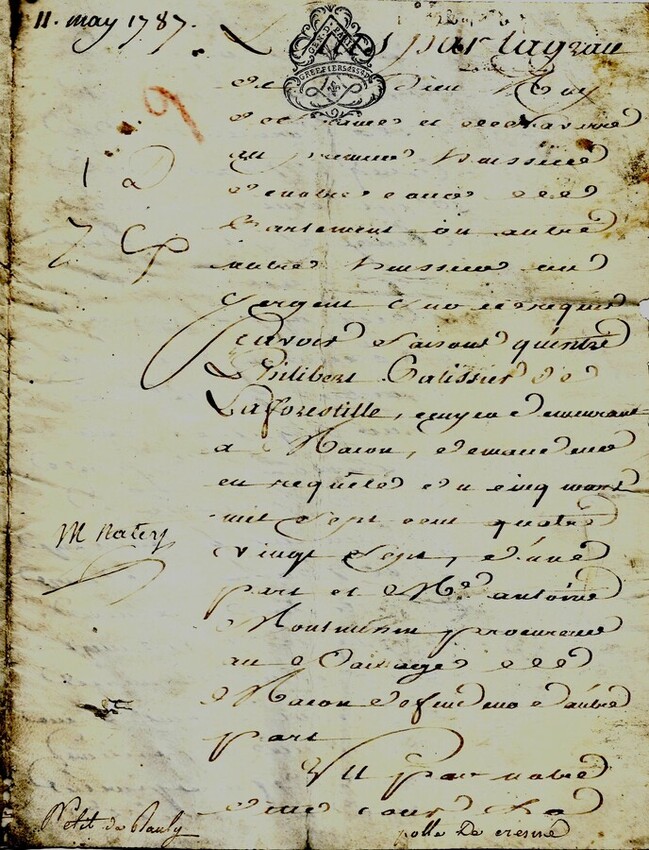 11. may 1787.
Louis par la grace
GREFFIERS
de Dieu Roy
de et de Navarre
au premier huissier
de notre cour de
Parlement ou autre
notre huissier ou
sergent sur ce requis
sçavoir faisons qu'entre
Philibert Palissier de
Laforestille, ecuyer demeurant
a Macon, demandeur
en requête du cinq mars
mil sept cent quatre
vingt sept, d'une
part et Me. antoine
procureur
au Bailliage de
Macon defendeur d'autre
part
Vu par notre
dite cour